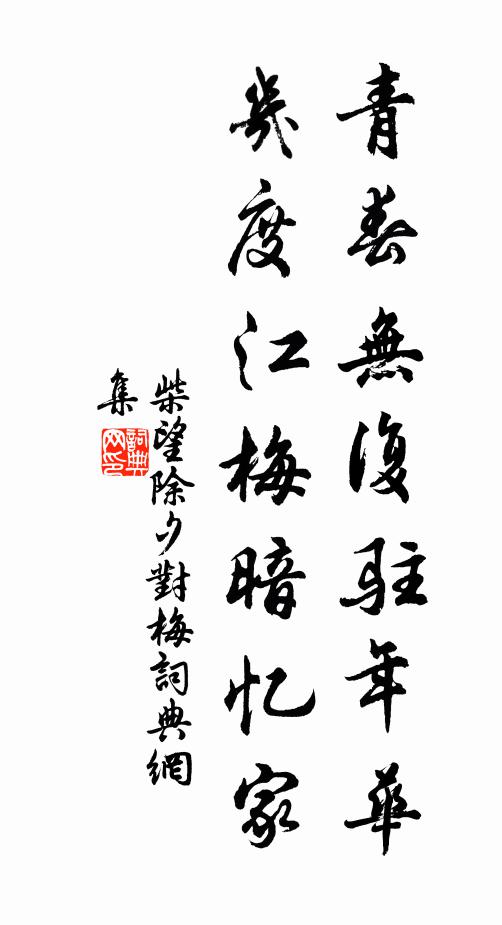 青春無復駐年華
幾度江梅暗忆家
柴望除夕對梅詞典網
集
詞典
网印